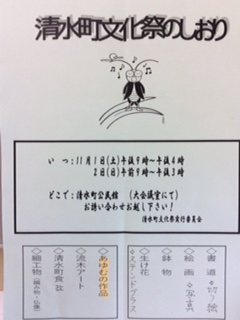 清水町文化祭のしおり
いつ：11月1日(土)午後9時～午後4時
2日(日)午前9時～午後3時
どこで：清水町公民館 （大会議室にて）
お誘い合わせお越し下さい！
清水町文化祭実行委員会
◇書道◇切り絵
◇絵画◇写真
◇鉢物
◇生け花
◇ステンドグラス
◇あゆむの作品
◇流木アート
◇清水町食改
◇細工物